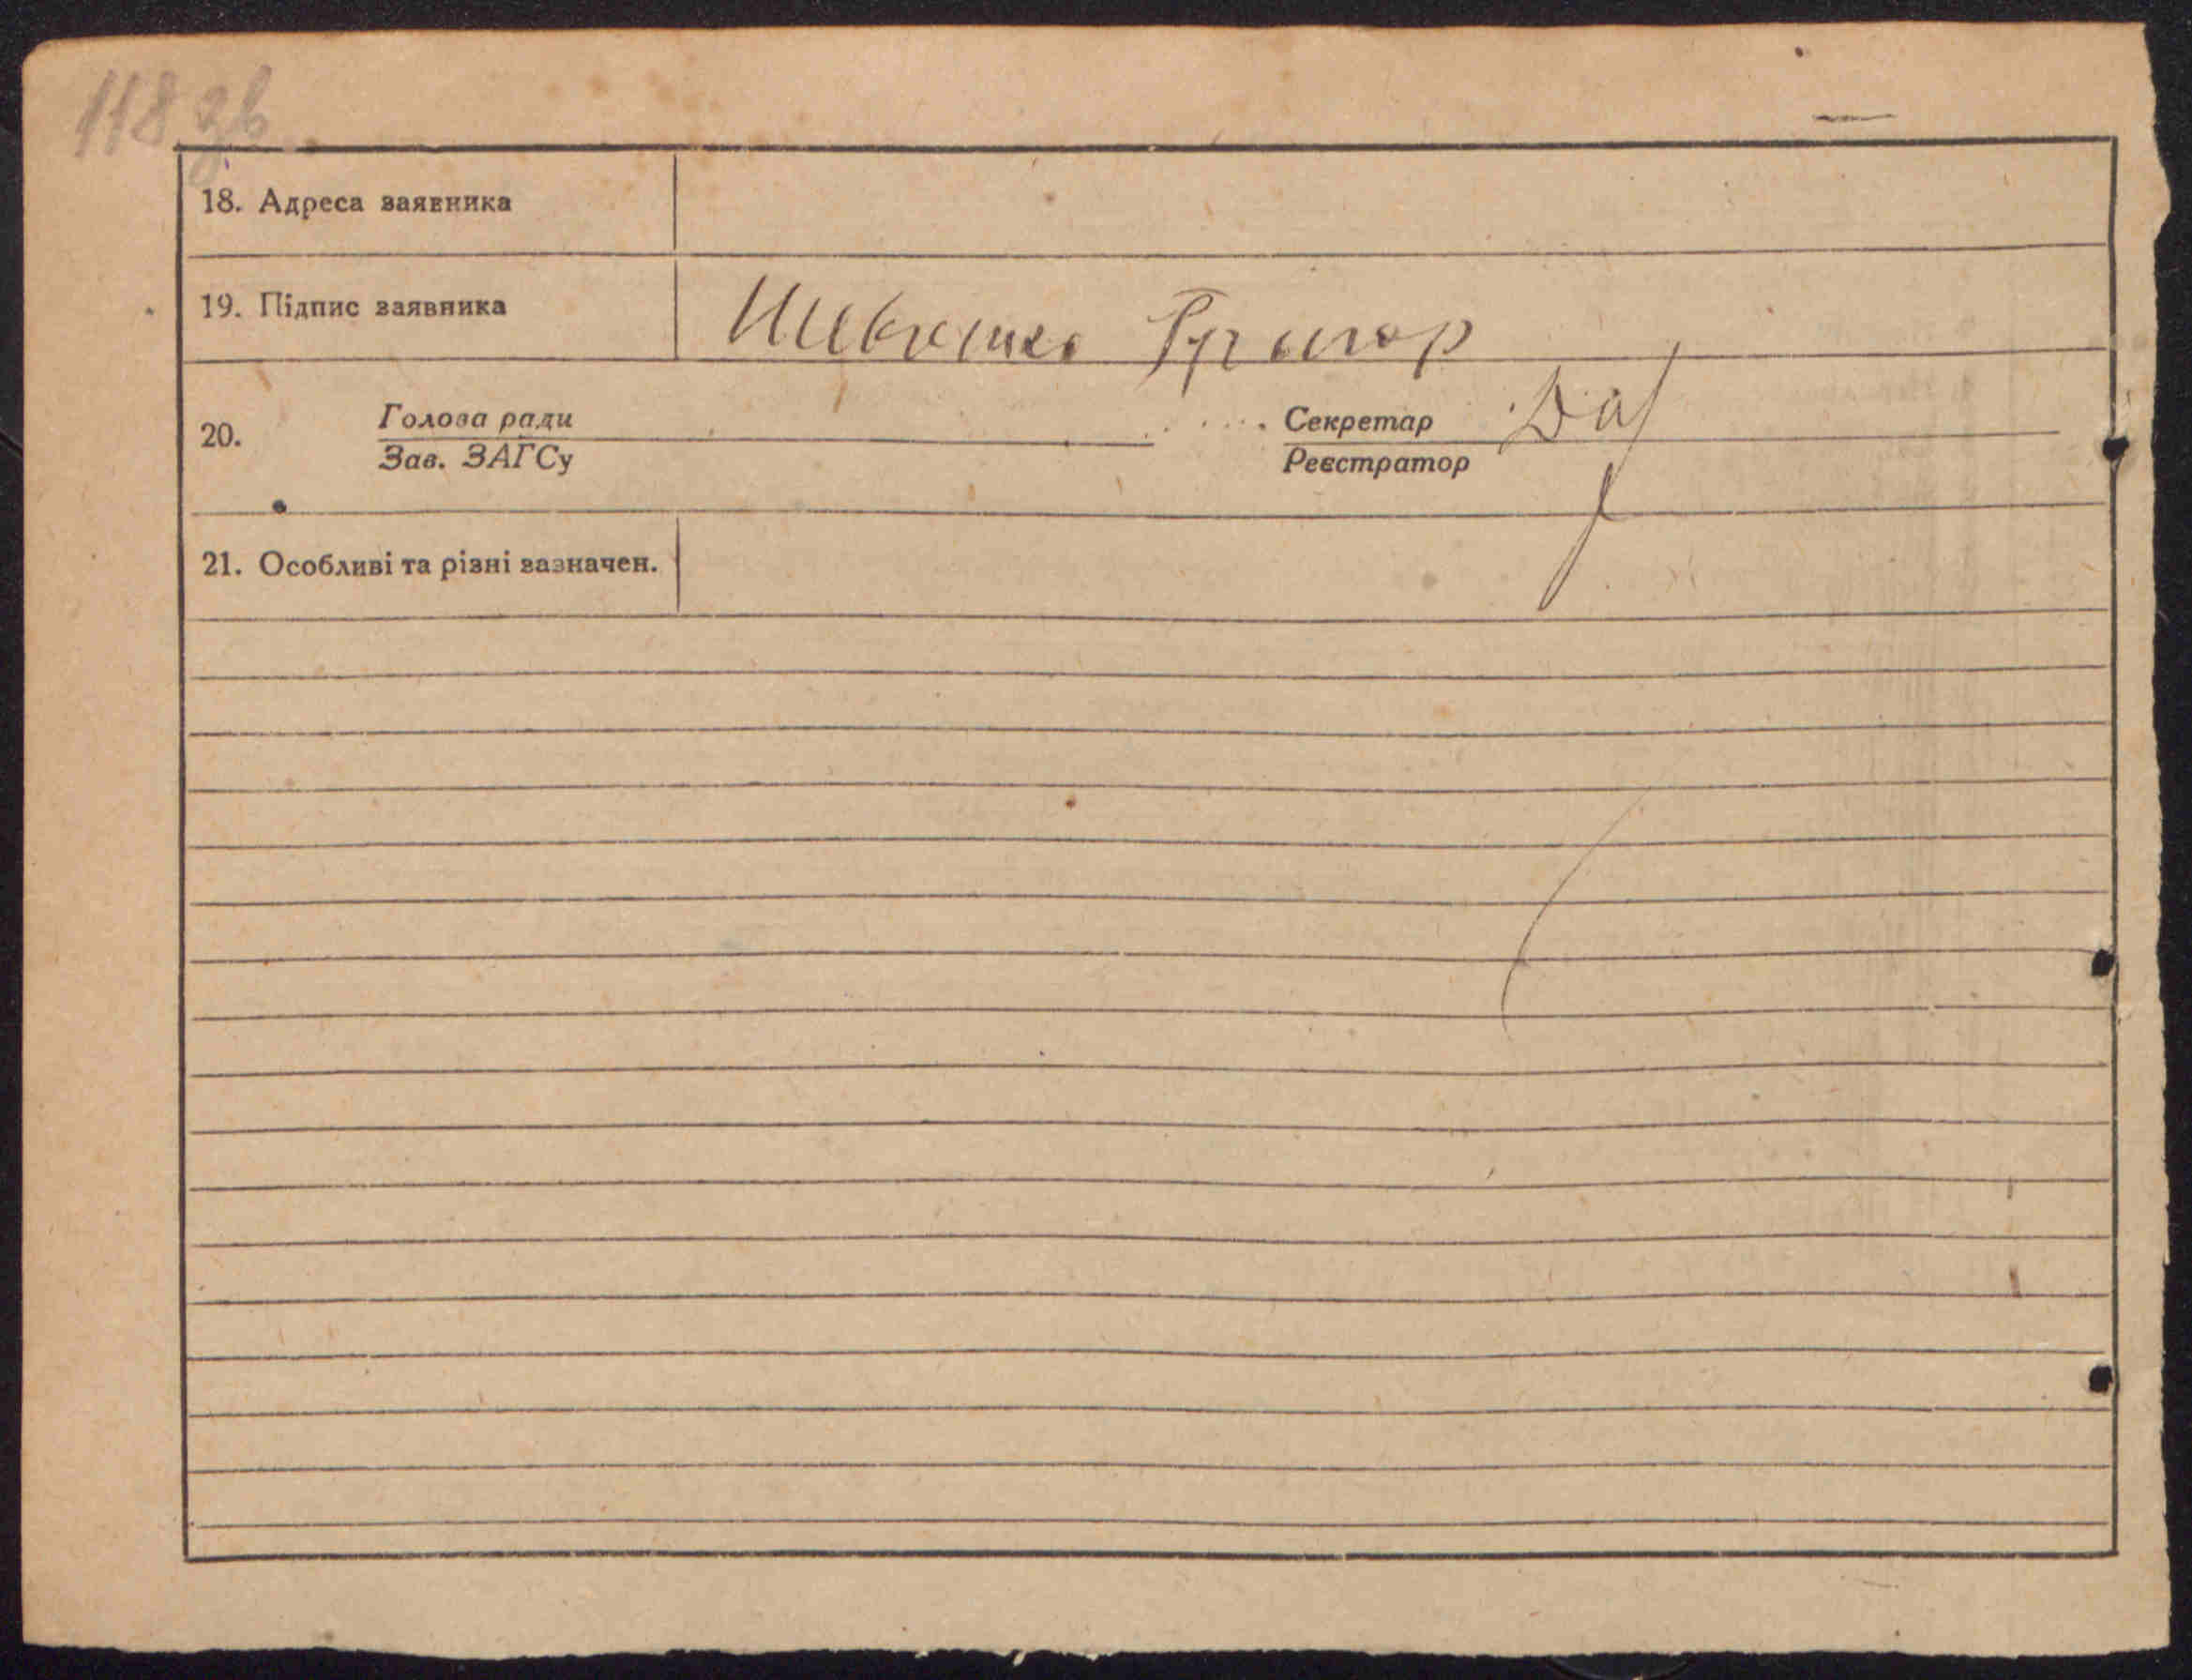 118 зв
18. Адреса заявника
19. Підпис заявника
Григор
20. Голова ради Секретар
Зав. ЗАГСу Реєстратор
21. Особливі та різні зазначен.